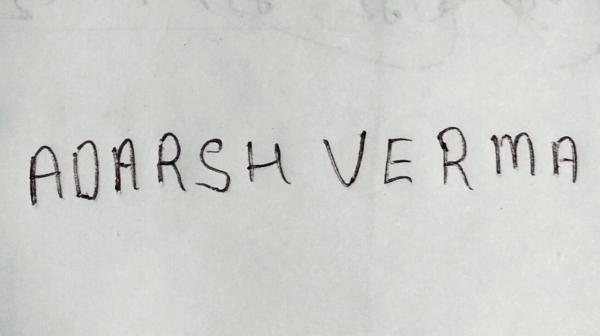 ADARSH VERMA